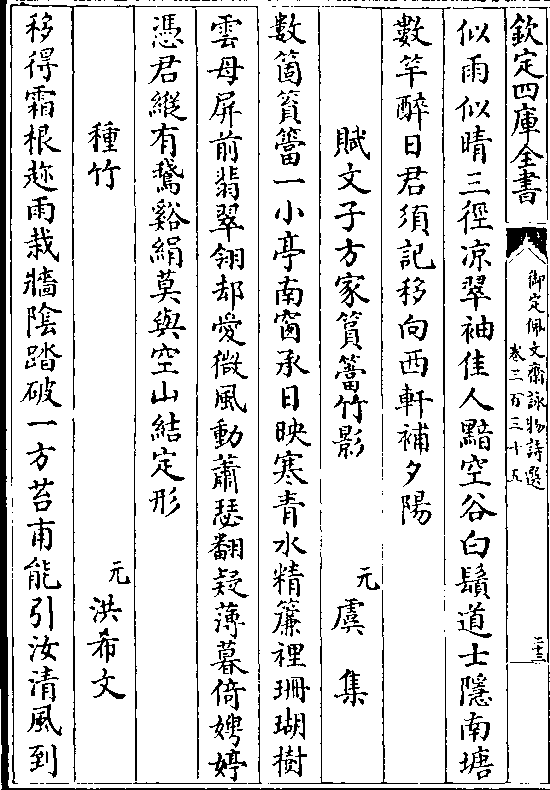 欽定四庫全書
御定佩文齋詠物詩選
卷三百三十五
二十三
似雨似晴三徑凉翠袖佳人黯空谷白鬚道士隱南塘
數竿醉日君須記移向西軒補夕陽
賦文子方家篔簹竹影
元 虞集
數箇篔簹一小亭南窗承日映寒青水精簾裡珊瑚樹
雲母屏前翡翠翎却愛微風動蕭瑟翻疑薄暮倚娉婷
憑君縱有鵞谿絹莫與空山結定形
種竹
元 洪希文
移得霜根趂雨栽牆陰踏破一方苔甫能引汝清風到